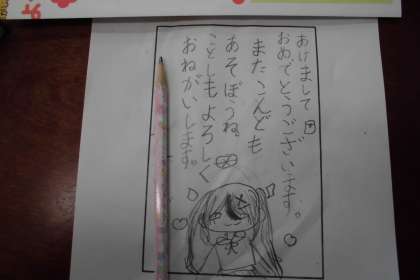 あけまして
おめでとうございます。
またこんども
あそぼうね。
ことしもよろしく
おねがいします。